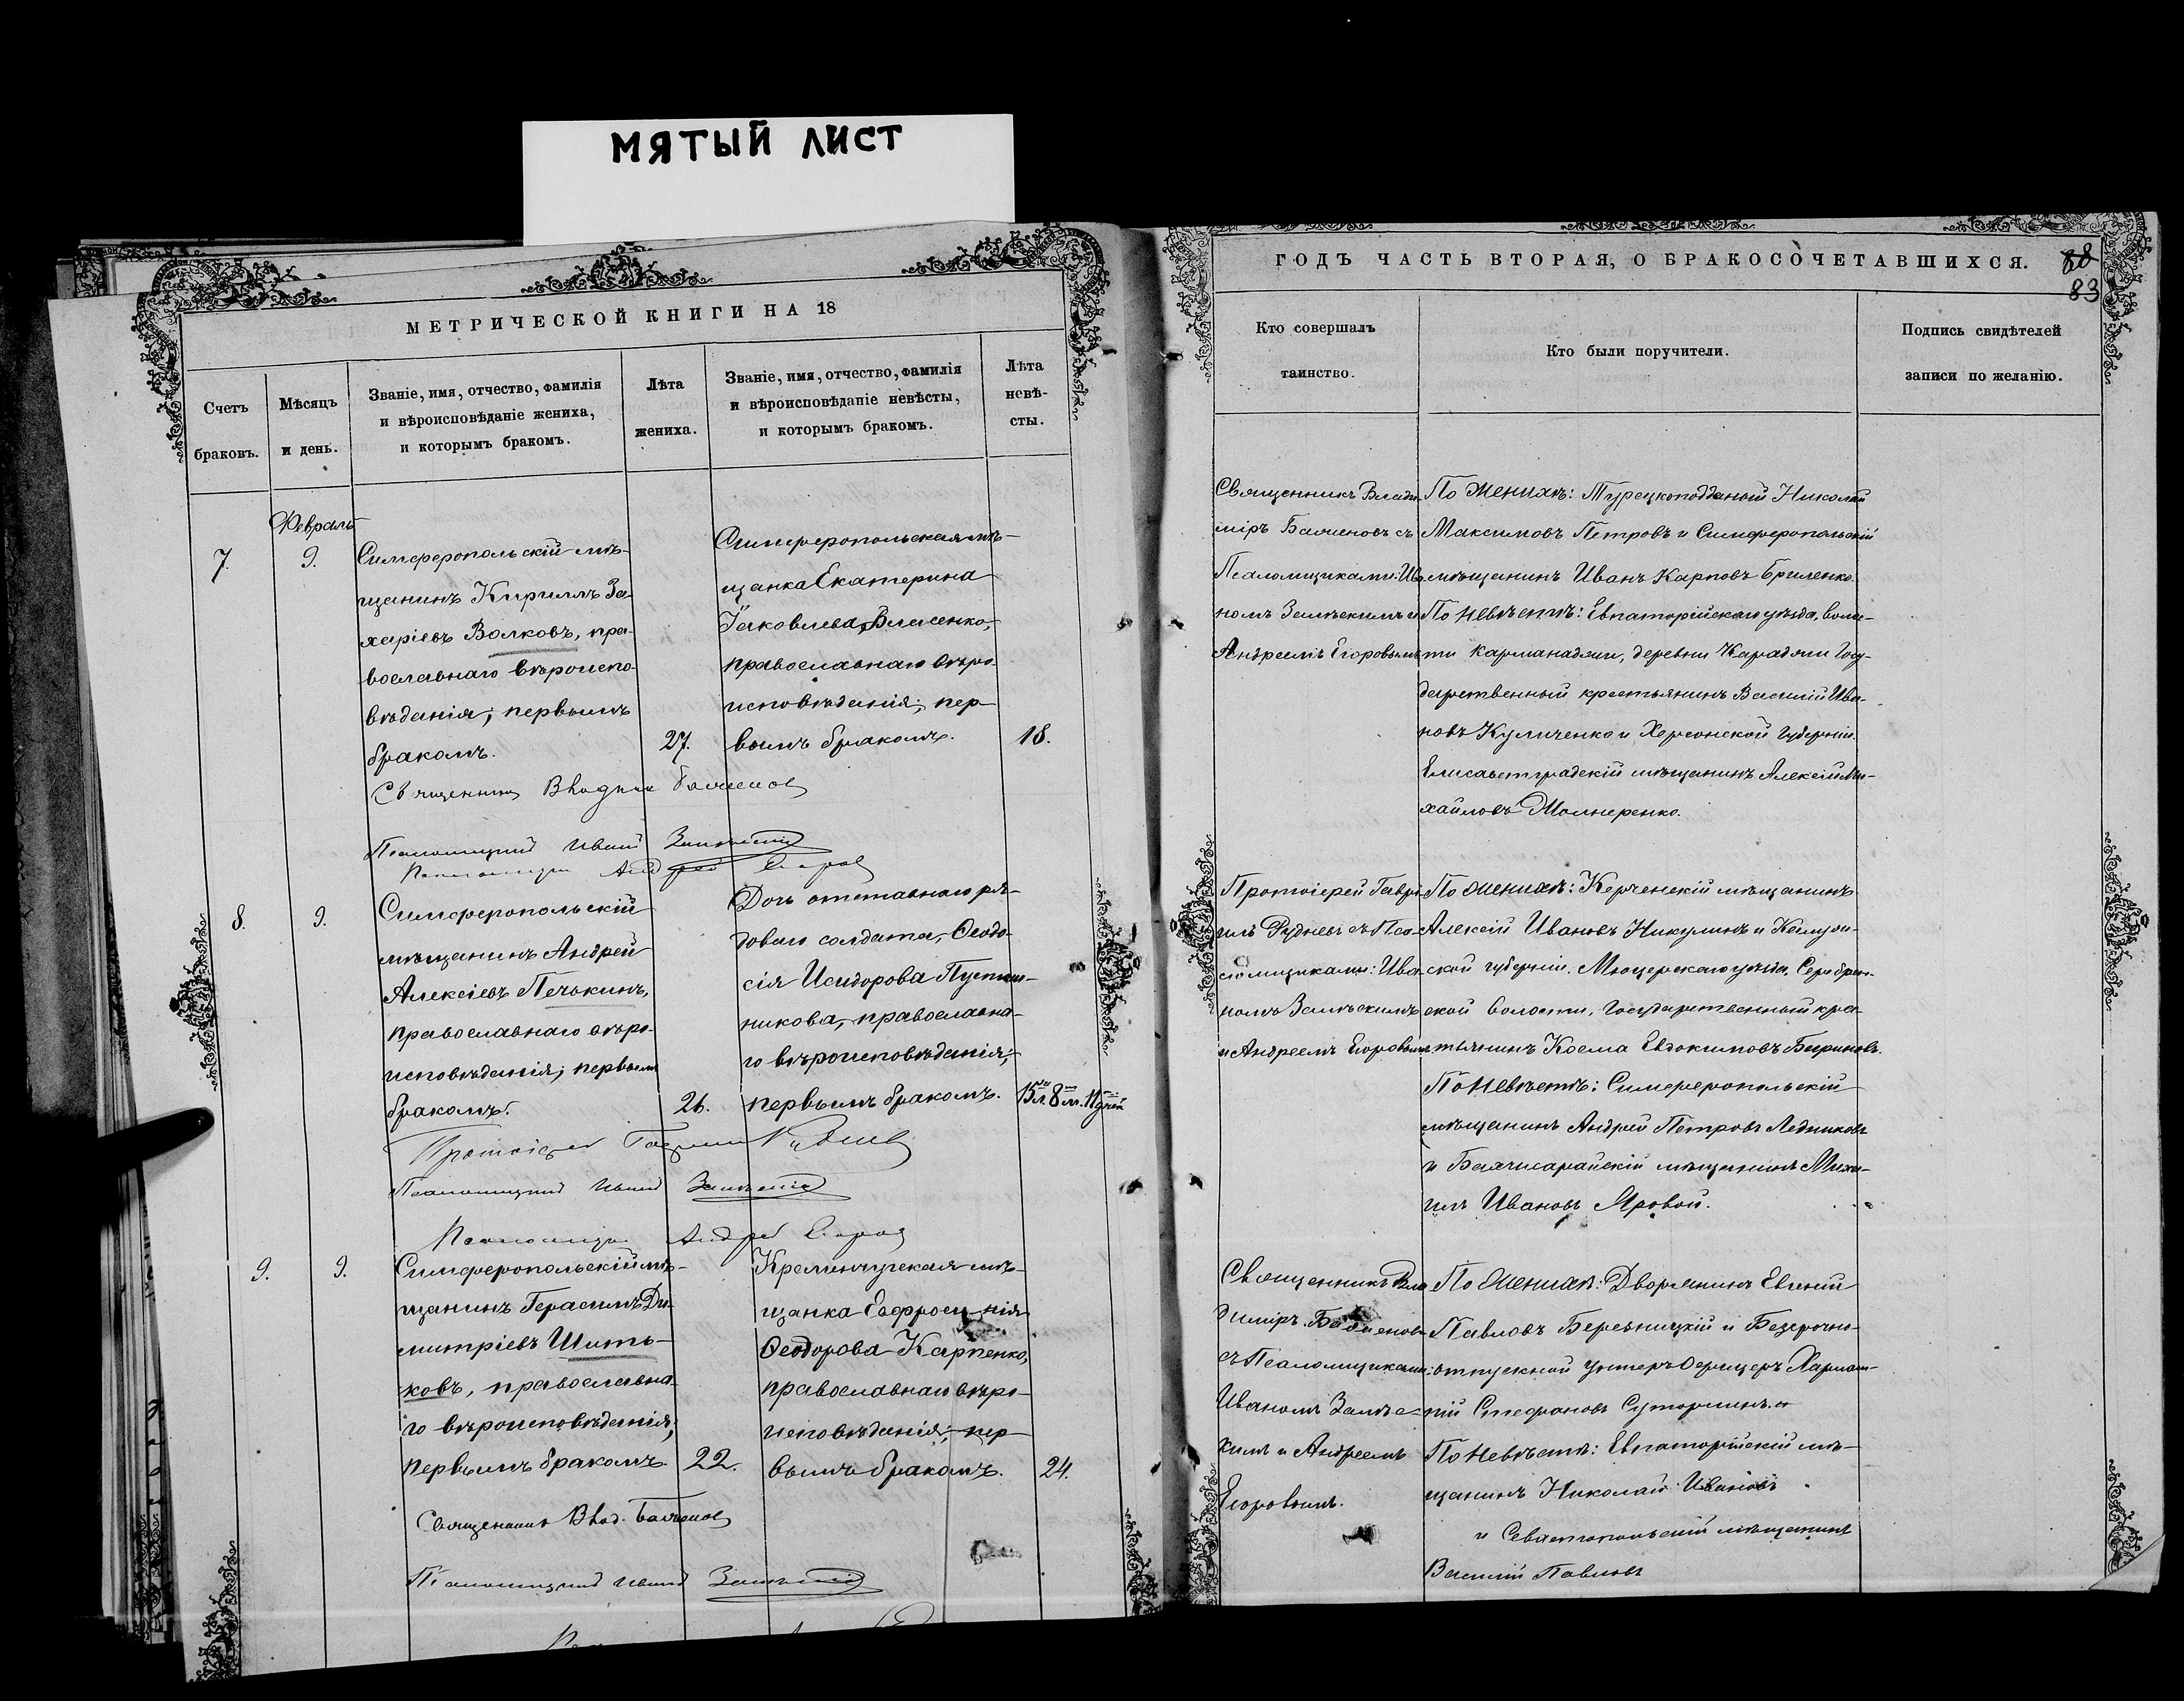 МЯТЫЙ ЛИСТ
МЕТРИЧЕСКОЙ КНИГИ НА 18
Счетъ
браковъ.
Мѣсяцъ
и день.
Званіе, имя, отчество, фамилія
и вѣроисповѣданіе жениха,
и которымъ бракомъ.
Лѣта
жениха.
Званіе, имя, отчество, фамилія
и вѣроисповѣданіе невѣсты,
и которымъ бракомъ.
Лѣта
невѣ-
сты.
Февраль
7.
9.
Симферопольскій мѣ-
щанинъ Кириллъ За-
харіевъ Волковъ, пра-
вославнаго вѣроиспо-
вѣданія; первымъ
бракомъ.
27.
Симферопольская мѣ-
щанка Екатерина
Іаковлева Власенко,
православнаго вѣро-
исповѣданія; пер-
вымъ бракомъ.
18.
Священникъ Влади
Псаломщикъ Иванъ
Псаломщикъ Андрей Егоровъ
8.
9.
Симферопольскій
мѣщанинъ Андрей
Алексіевъ Печькинъ,
православнаго вѣро-
исповѣданія; первымъ
бракомъ.
26.
Дочь отставнаго ря-
доваго солдата, Ѳеодо-
сія Исидорова Пустын-
никова, православна-
го вѣроисповѣданія;
первымъ бракомъ.
15 л. 8 м. 11 дней
Протоіерей Гавріилъ Рудневъ
Псаломщикъ Иванъ
Псаломщикъ Андрей Егоровъ
9.
9.
Симферопольскій мѣ-
щанинъ Герасимъ Ди-
митріевъ Шить-
ковъ, православна-
го вѣроисповѣданія;
первымъ бракомъ.
22.
Кременчугская мѣ-
щанка Евфросинія
Ѳеодорова Карпенко,
православнаго вѣро-
исповѣданія; пер-
вымъ бракомъ.
24.
Священникъ Влад.
Псаломщикъ Иванъ
ГОДЪ ЧАСТЬ ВТОРАЯ, О БРАКОСОЧЕТАВШИХСЯ.
88
83
Кто совершалъ
таинство.
Кто были поручители.
Подпись свидѣтелей
записи по желанію.
Священникъ Влади-
міръ Баженовъ съ
Псаломщиками: Ива-
номъ и
Андреемъ Егоровымъ
По женихѣ: Турецкоподданый Николай
Максимовъ Петровъ и Симферопольскій
мѣщанинъ Иванъ Карповъ Бриленко.
По невѣстѣ: Евпаторійскаго уѣзда, волос-
ти деревни Караджи Госу-
дарственный крестьянинъ Василій Ива-
новъ Куличенко и Херсонской Губерніи
Елисаветградскій мѣщанинъ Алексій Ми-
хайловъ
Протоіерей Гаврі-
илъ Рудневъ съ Пса-
ломщиками: Ива-
номъ
и Андреемъ Егоровымъ
По женихѣ: Керченскій мѣщанинъ
Алексій Ивановъ Никулинъ и Калуж-
ской губерніи, уѣзда, Серебрен-
ской волости, Государственный крес-
тьянинъ Косма Евдокимовъ Бириновъ.
По невѣстѣ: Симферопольскій
мѣщанинъ Андрей Петровъ Ледниковъ
и Бахчисарайскій мѣщанинъ Миха-
илъ Ивановъ Яровой.
Священникъ Вла-
диміръ Баженовъ
съ Псаломщиками:
Иваномъ
и Андреемъ
Егоровымъ.
По женихѣ: Дворянинъ Евгеній
Павловъ Березницкій и Безсрочно-
отпускной унтеръ-офицеръ Харлам-
пій Стефановъ Суторминъ.
По невѣстѣ: Евпаторійскій мѣ-
щанинъ Николай Ивановъ
и Севастопольскій мѣщанинъ
Василій Павловъ